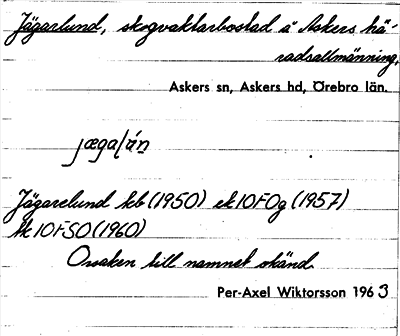 Jägarlund, skogvaktarbostad å Askers hä-
radsallmänning,
Askers sn, Askers hd, Örebro län.
Jägarelund kb (1950) ek 10F0g (1957)
tk 10F SO (1960)
Orsaken till namnet okänd.
Per-Axel Wiktorsson 1963